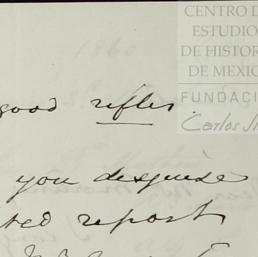 CENTRO D
ESTUDIO
DE HISTOR
DE MEXIC
FUNDACI
Carlos Sl
1860
good rifles
you desguise
ted report